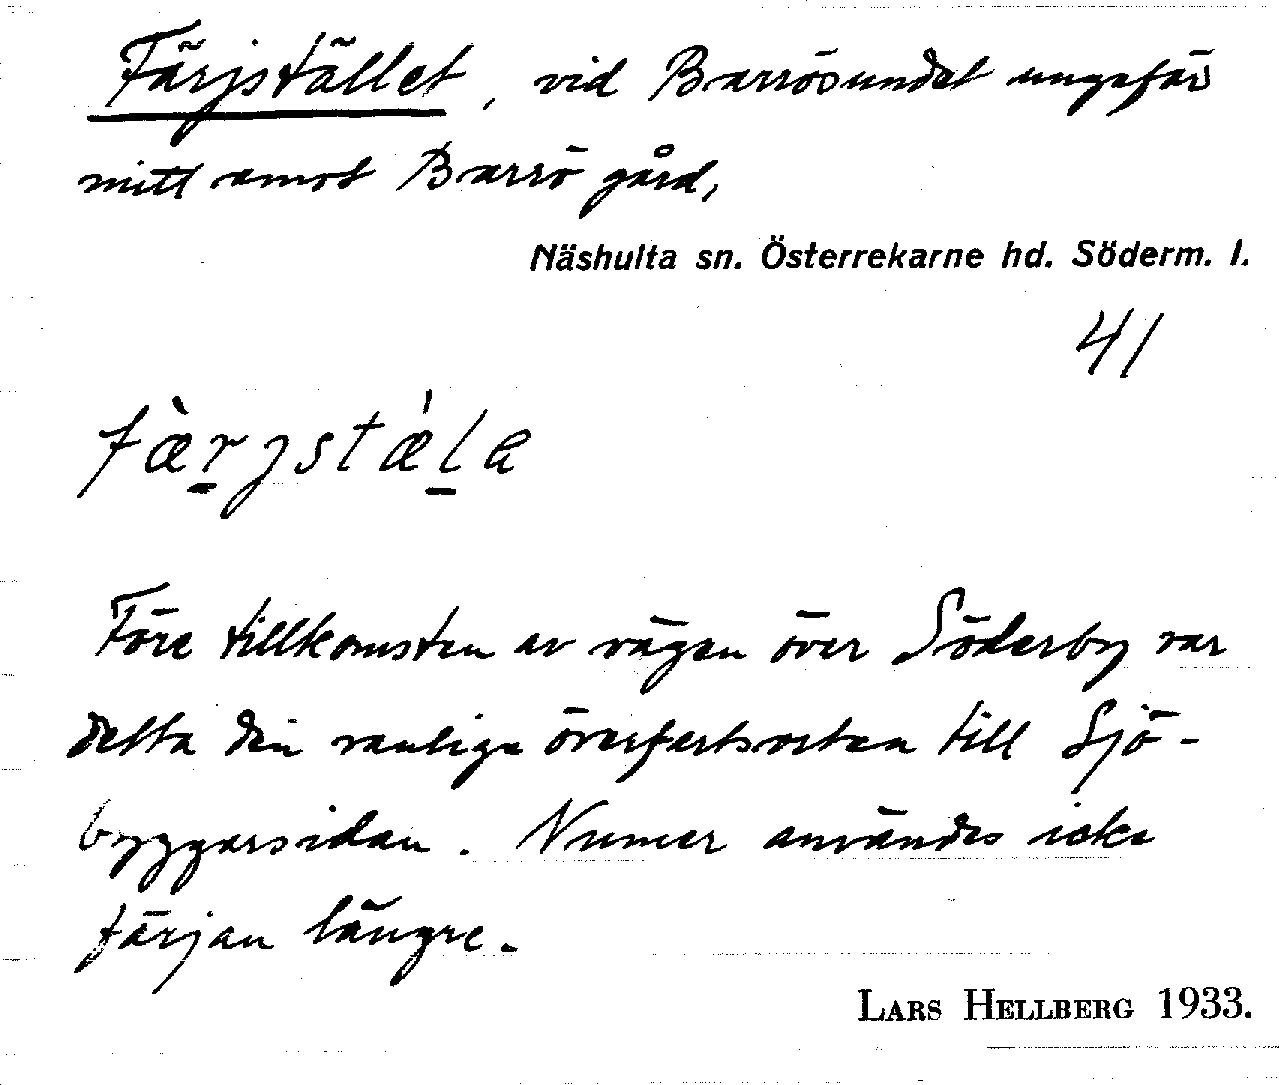 Färjstället, vid Barrösundet ungefär
mitt emot Barrö gård,
Näshulta sn. Österrekarne hd. Söderm. l.
41
fàrjstæ̀la
Före tillkomsten av vägen över Söderby var
detta den vanliga överfartsorten till Sjö-
byggarsidan. Numer användes icke
färjan längre.
LARS HELLBERG 1933.